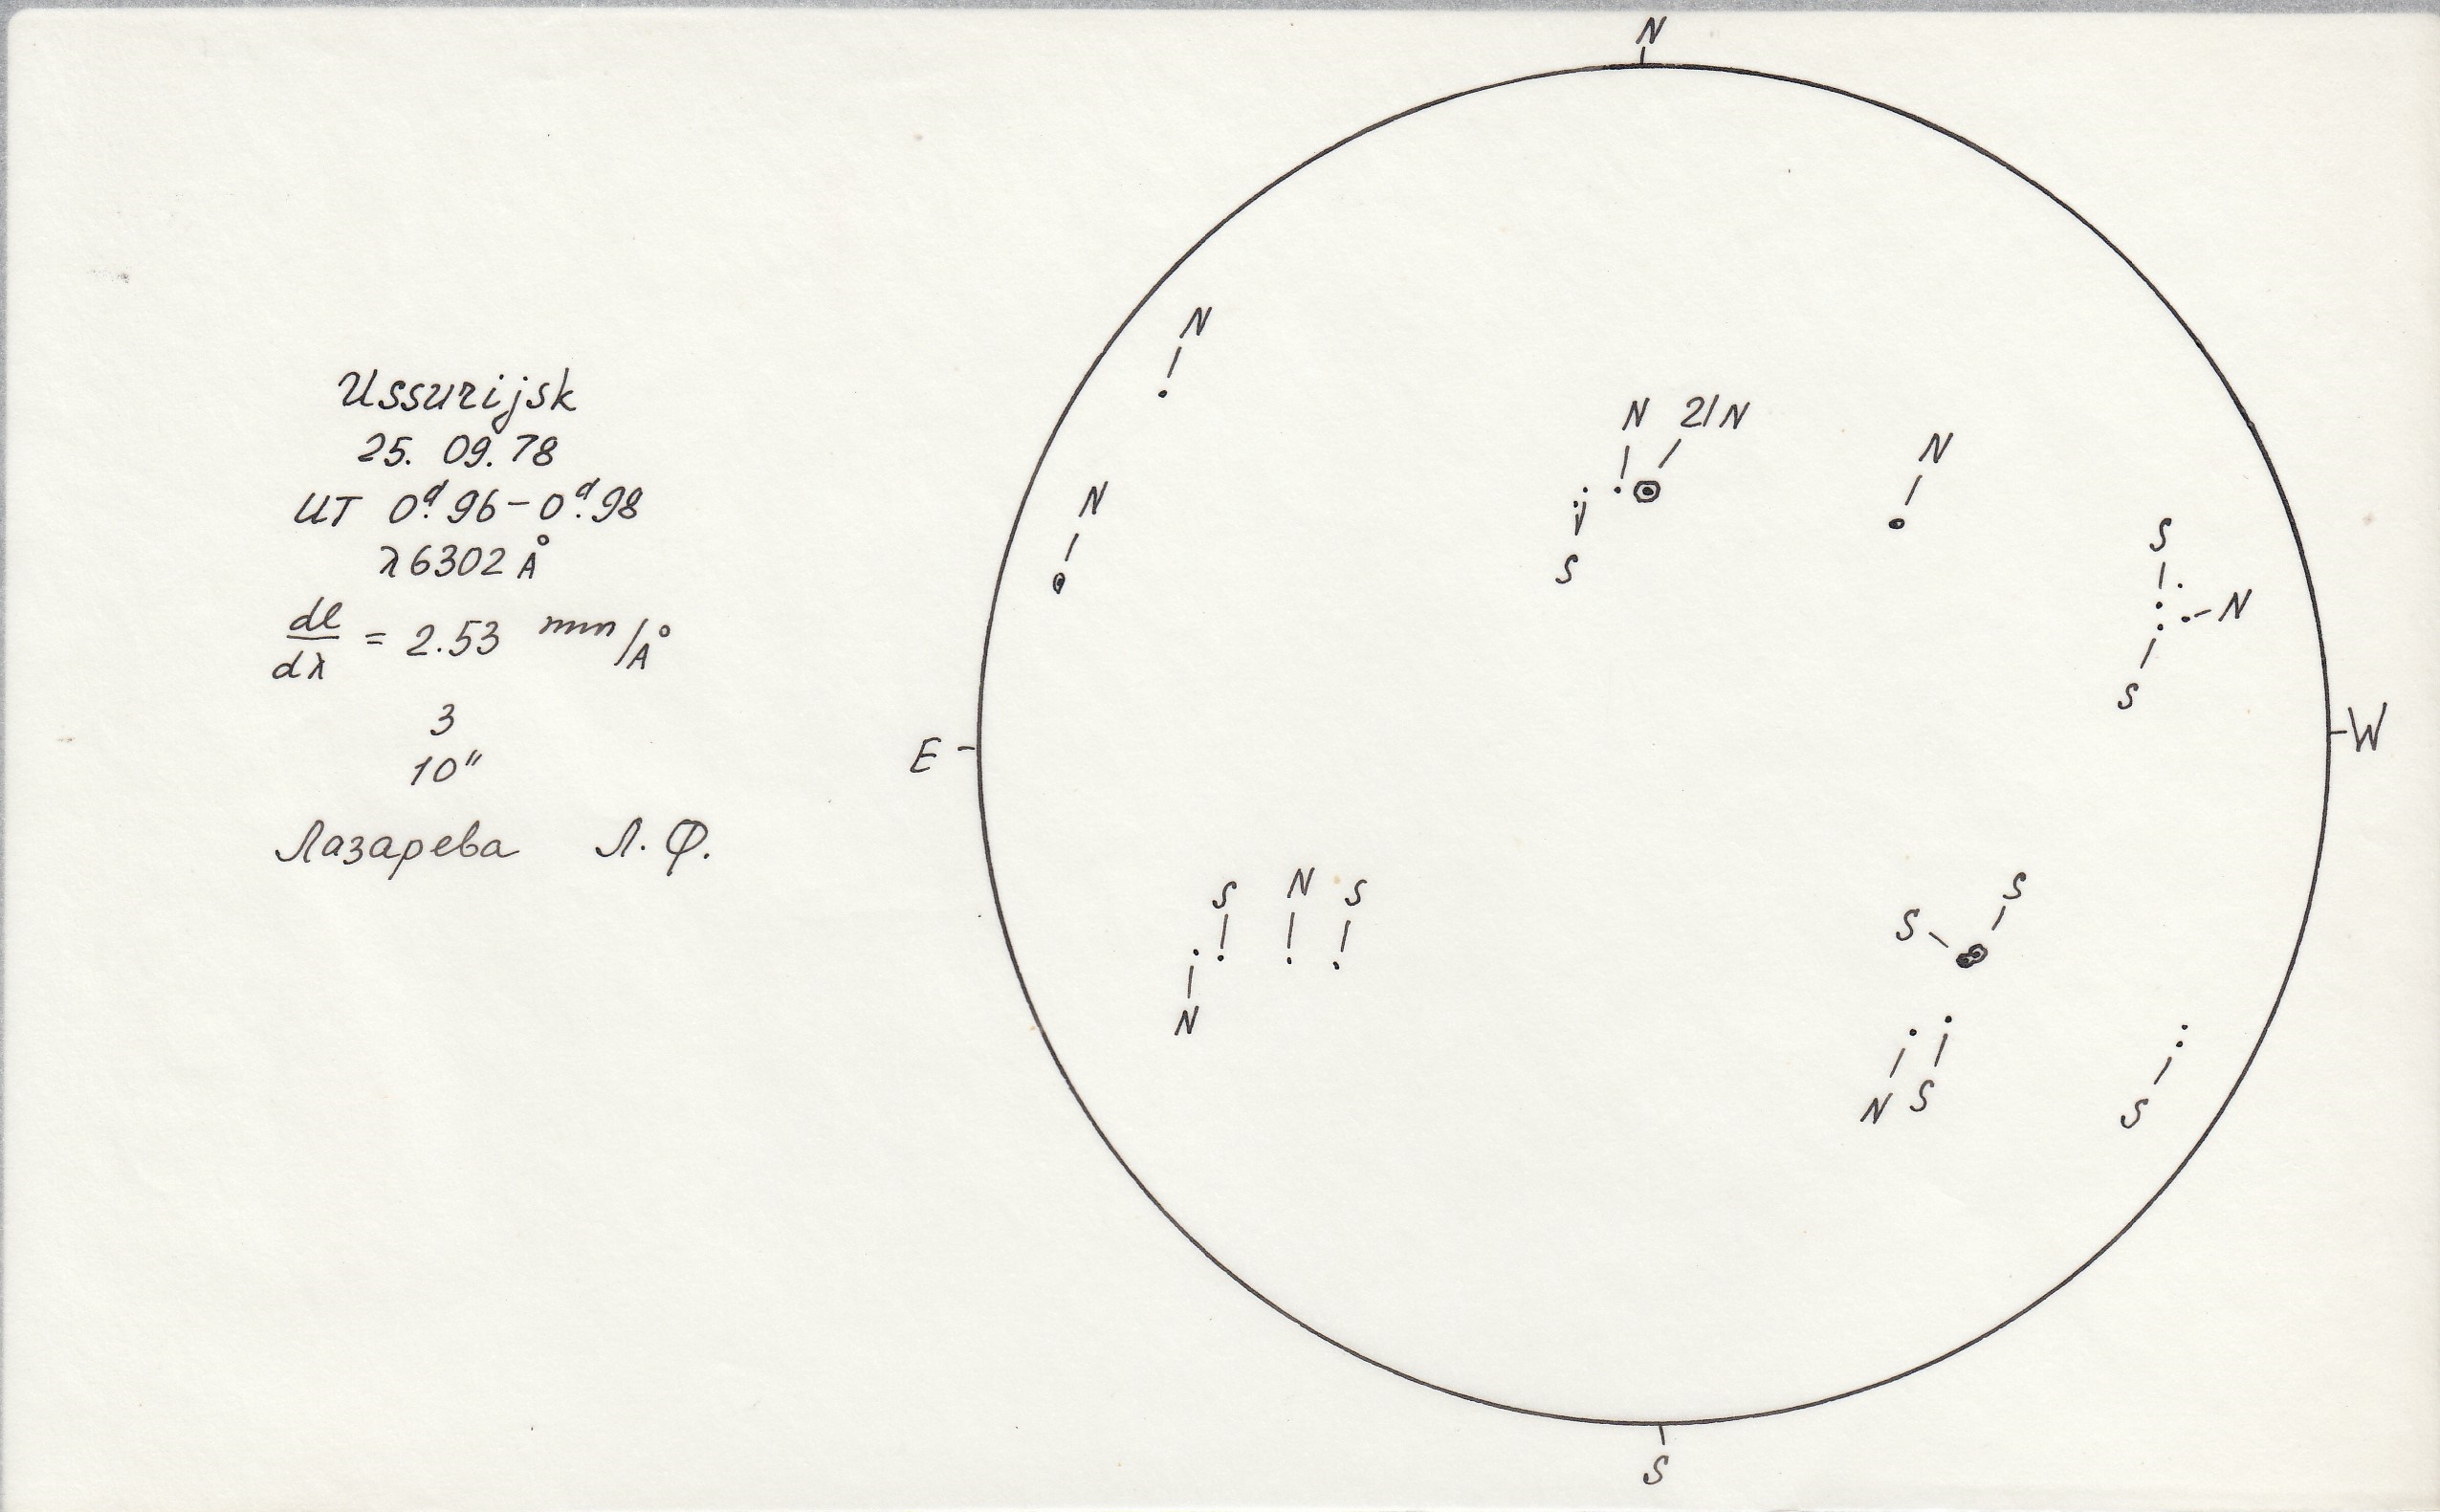 N
Ussurijsk
25. 09. 78
UT 0ᵈ.96 – 0ᵈ.98
λ 6302 Å
dl/dλ = 2.53 mm/Å
3
10"
Лазарева Л. Ф.
N
N 21N
N
N
S
S
N
S
E
W
S N S
S
S
N
N S
S
S